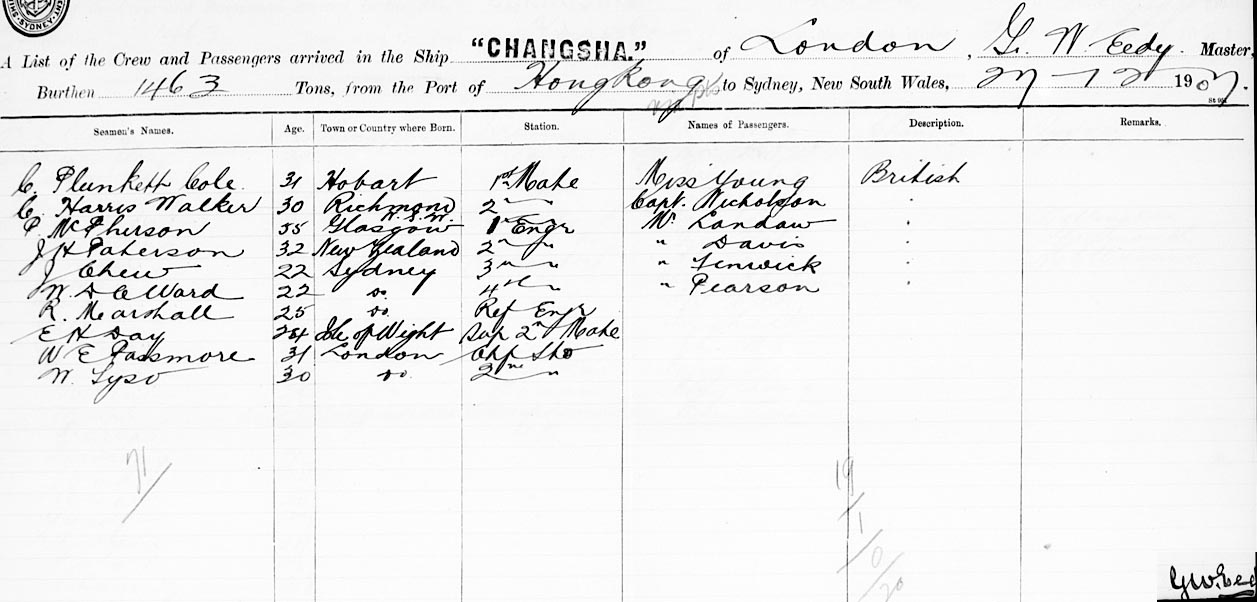 SYDNEY
A List of the Crew and Passengers arrived in the Ship "CHANGSHA." of London, G. W. Eedy. Master,
Burthen 1463 Tons, from the Port of Hongkong to Sydney, New South Wales, 27-12 1907.
Seamen's Names. Age. Town or Country where Born. Station. Names of Passengers. Description. Remarks.
C. Plunkett Cole. 31 Hobart 1st Mate Miss Young British
C. Harris Walker 30 Richmond N.S.W. 2nd " Capt. Nicholson "
P. McPherson 55 Glasgow 1st Engr Mr Landaw "
J H Paterson 32 New Zealand 2nd " " Davis "
J Chew 22 Sydney 3rd " " Fenwick "
W. D C Ward 22 do. 4th " " Pearson "
R. Marshall 25 do. Ref Engr
E H Day 24 Isle of Wight Sup 2nd Mate
W E Passmore 31 London Chf Std
W. Tyso 30 do. 2nd "
71
19
1
0
20
G.W. Eed